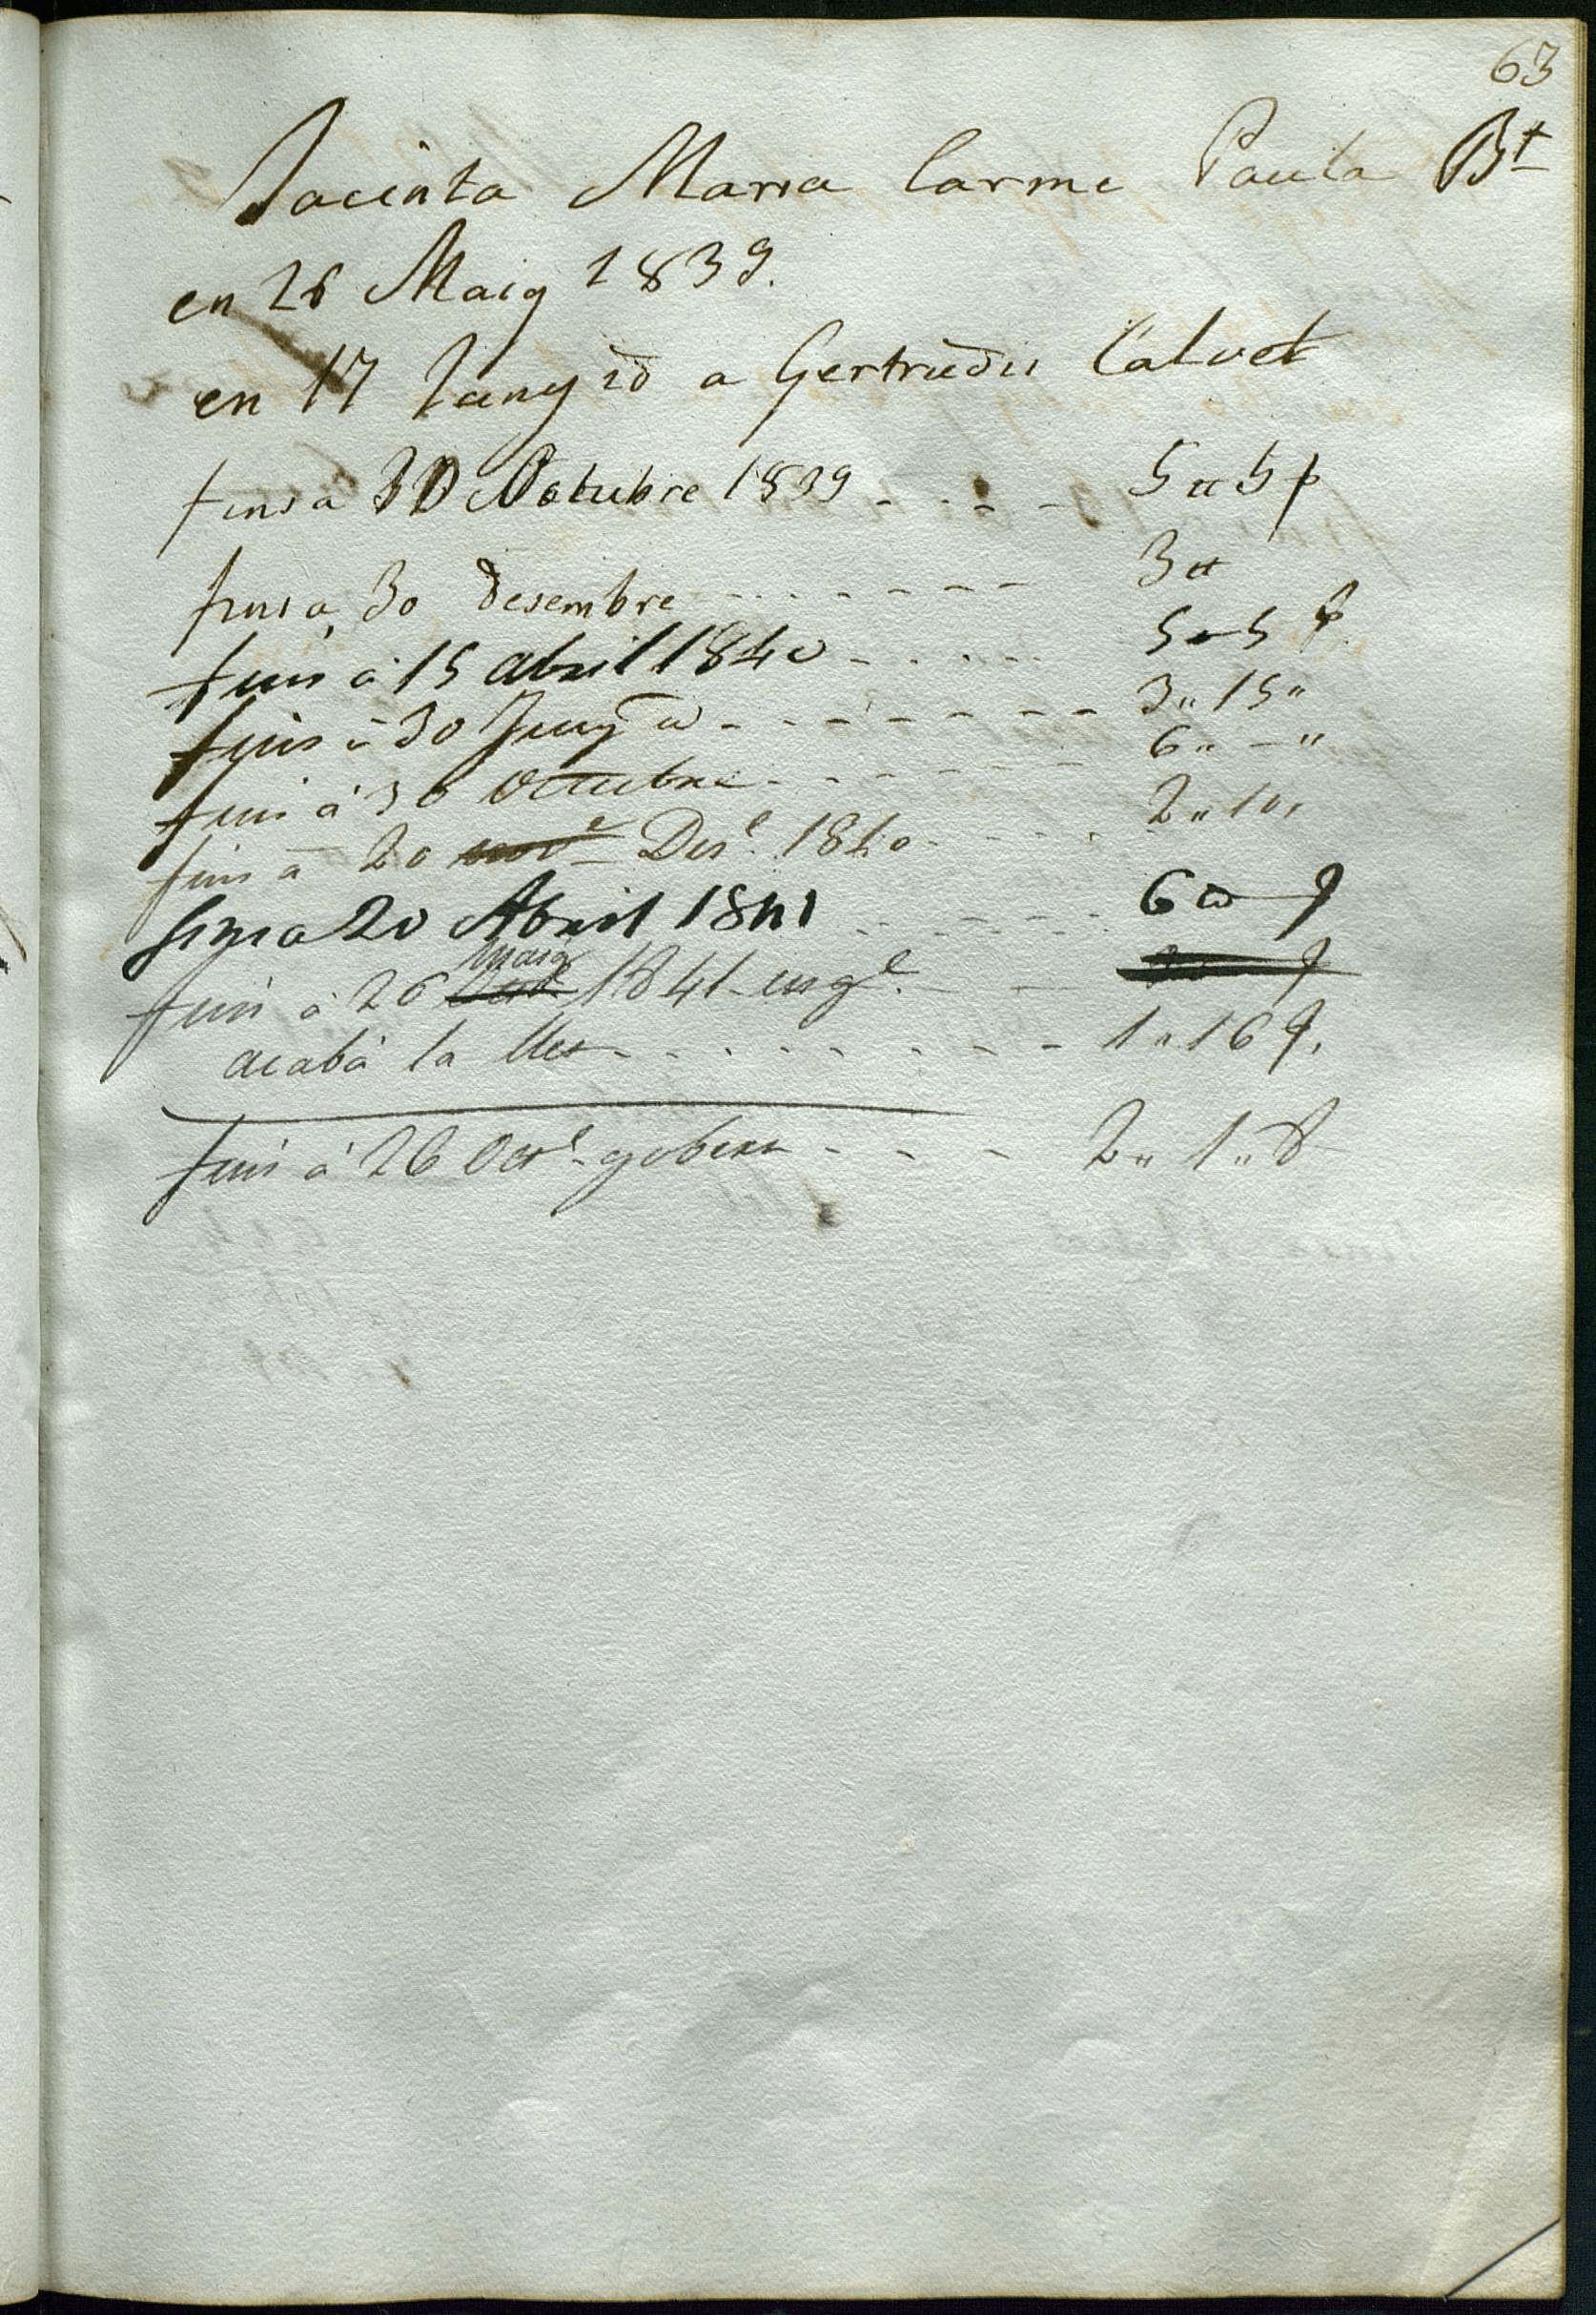 63
Jacinta Maria Carme Paula Bt
en 26 Maig 1839.
en 17 Juny id a Gertrudis Calvet
fins a 30 Octubre 1839 - . . - 5 ₶ 5 ſ
fins a 30 desembre - - . . - - - - 3 ₶
fins à 15 abril 1840 - . . . . 5 - 5 ſ
fins à 30 Juny id - - - - - - - - 3 " 15 "
fins à 30 Octubre - - - - - - - 6 " — "
fins à 20 Des.e 1840 - - - . 2 " 10 "
fins a 20 Abril 1841 - - - - - 6
fins à 26 Maig 1841 - -
acabà la llet - . . . - - - - - 1 " 16
fins à 26 Oct.e - - - - 2 " 1 " 8